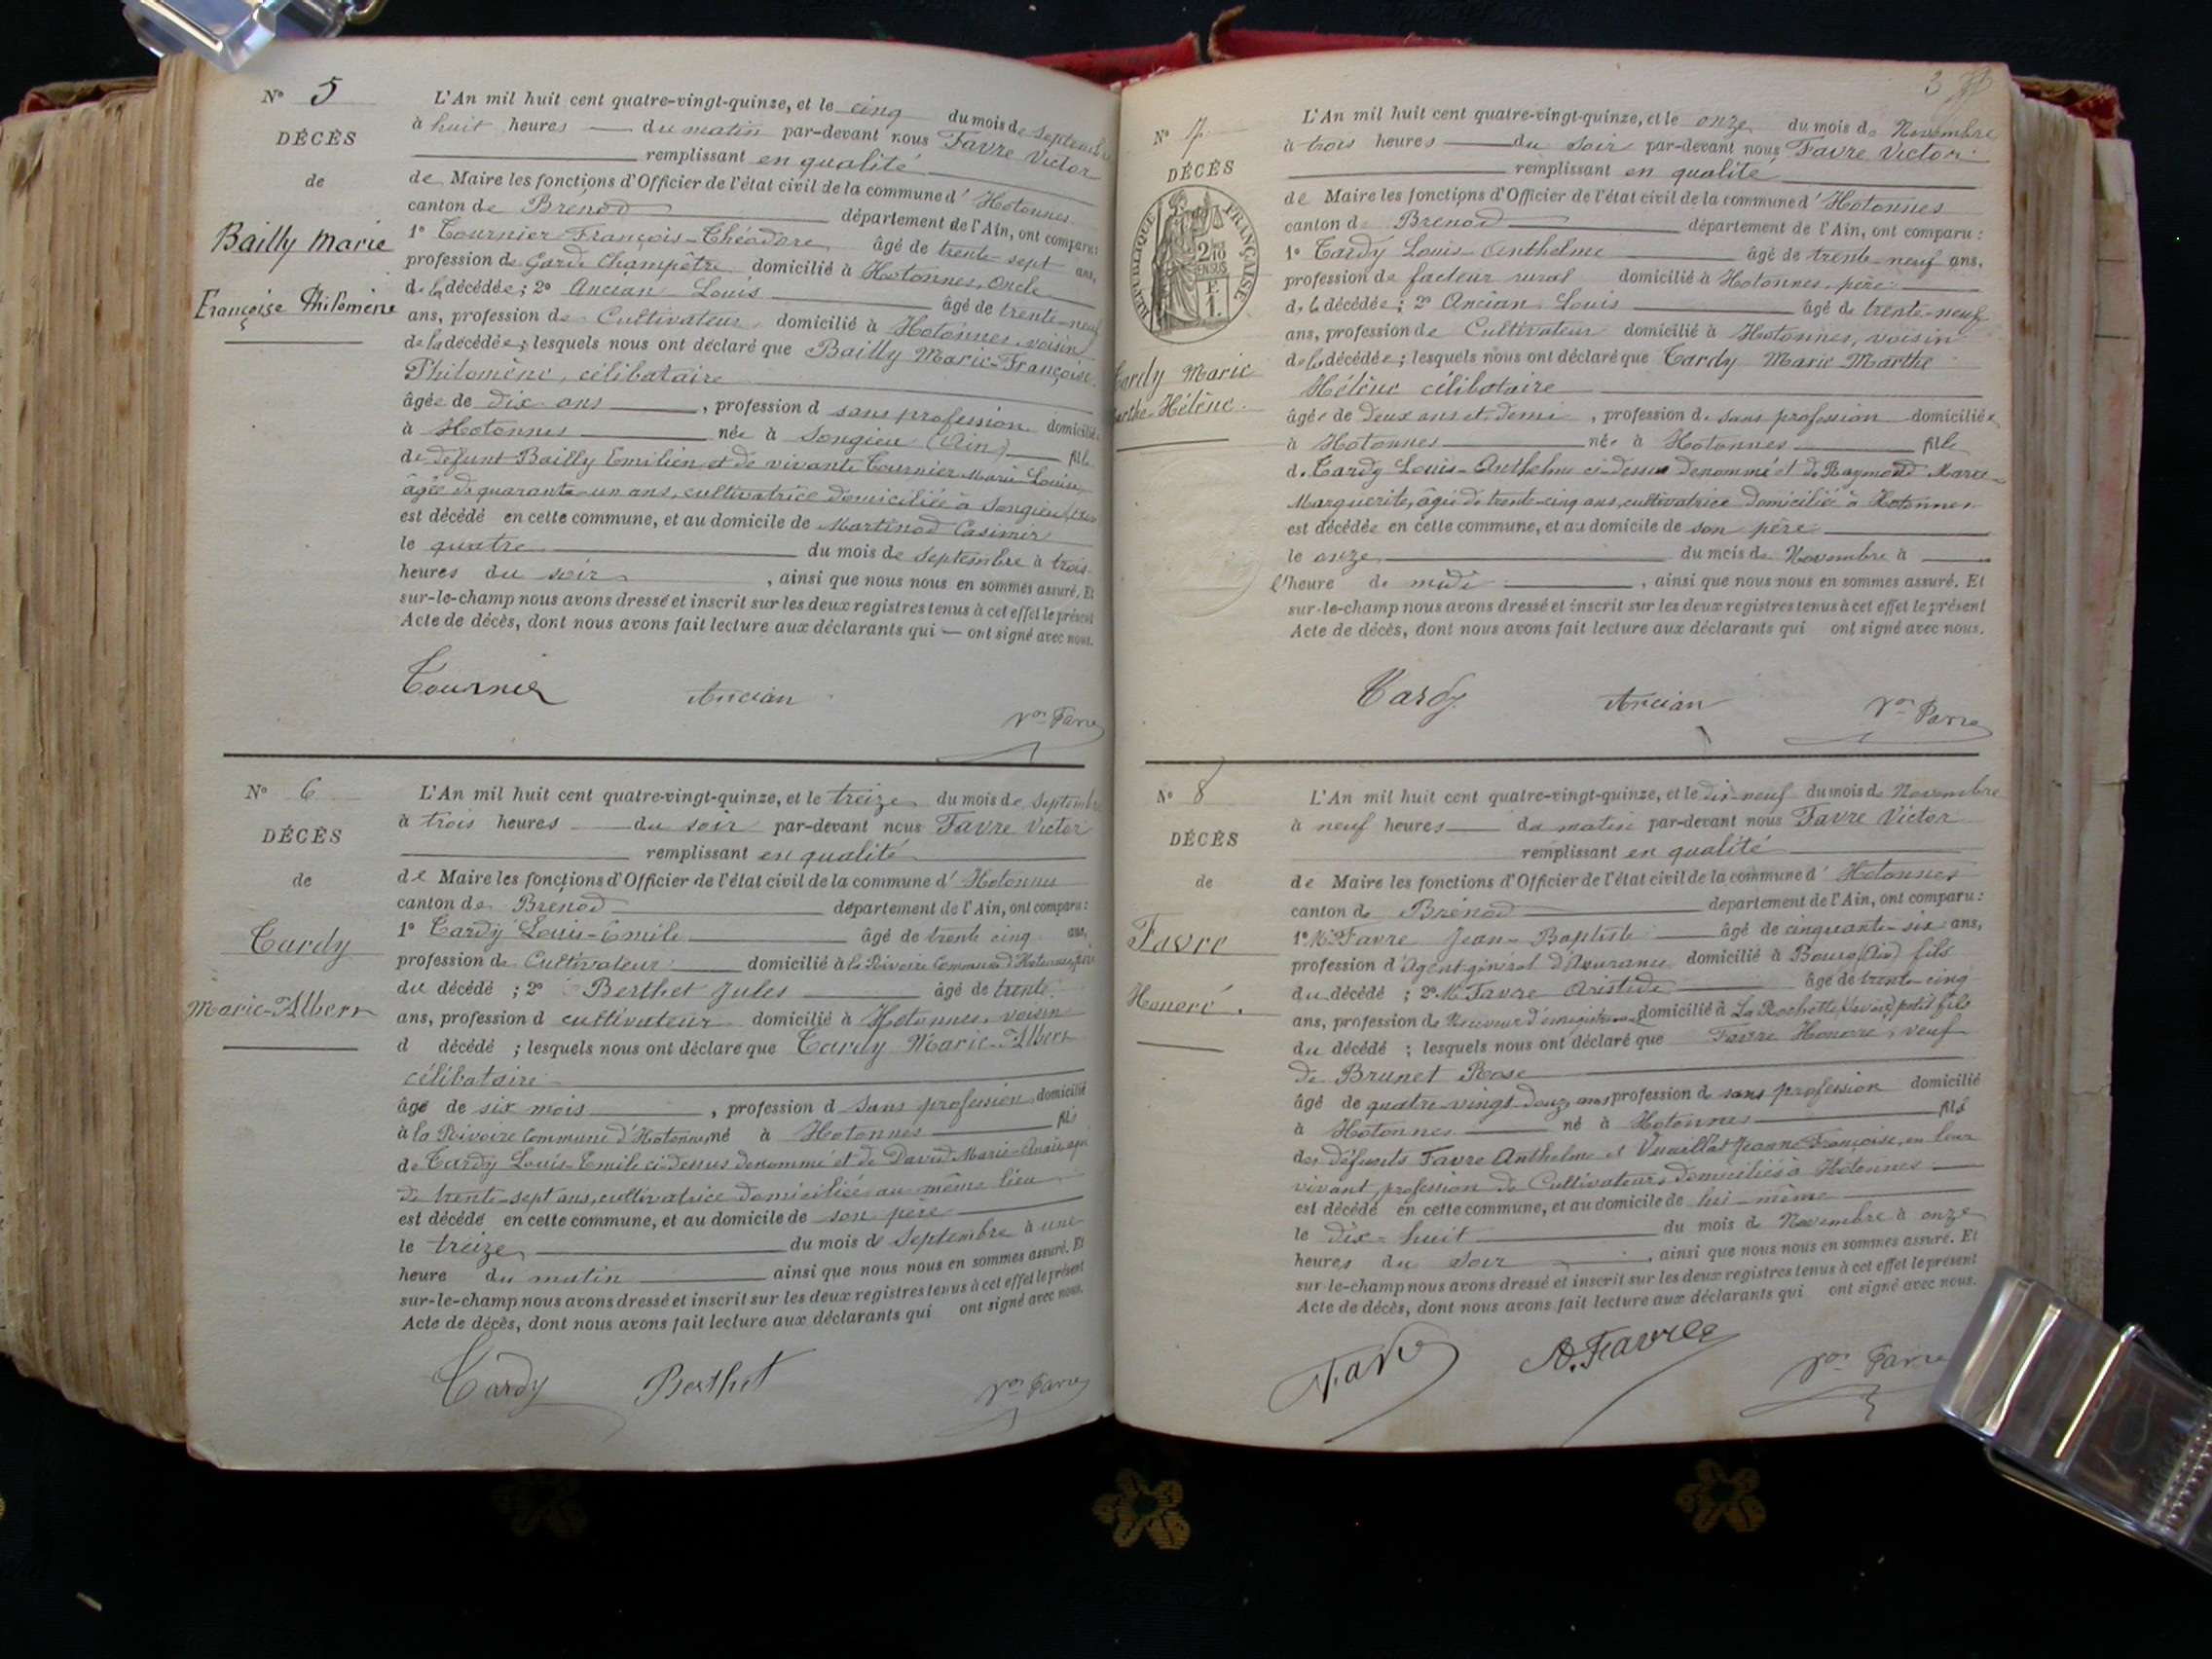 N° 5
DÉCÈS
de
Bailly Marie
Françoise Philomène
L'An mil huit cent quatre-vingt-quinze, et le cinq du mois de Septembre
à huit heures du matin par-devant nous Favre Victor
remplissant en qualité
de Maire les fonctions d'Officier de l'état civil de la commune d'Hotonnes
canton de Brénod département de l'Ain, ont comparu:
1° Tournier François-Théodore âgé de trente-sept ans,
profession de Garde Champêtre domicilié à Hotonnes, oncle
de la décédée; 2° Ancian Louis âgé de trente-neuf
ans, profession de Cultivateur domicilié à Hotonnes, voisin
de la décédée; lesquels nous ont déclaré que Bailly Marie-Françoise
Philomène, célibataire
âgée de dix ans, profession d sans profession domiciliée
à Hotonnes née à Songieu (Ain) fille
de défunt Bailly Emilien et de vivante Tournier Marie Louise,
âgée de quarante-un ans, cultivatrice domiciliée à Songieu (Ain)
est décédé en cette commune, et au domicile de Martinod Casimir
le quatre du mois de Septembre à trois
heures du soir, ainsi que nous nous en sommes assuré. Et
sur-le-champ nous avons dressé et inscrit sur les deux registres tenus à cet effet le présent
Acte de décès, dont nous avons fait lecture aux déclarants qui — ont signé avec nous.
Tournier Ancian Vor Favre
N° 6
DÉCÈS
de
Tardy
Marie-Albert
L'An mil huit cent quatre-vingt-quinze, et le treize du mois de Septembre
à trois heures du soir par-devant nous Favre Victor
remplissant en qualité
de Maire les fonctions d'Officier de l'état civil de la commune d'Hotonnes
canton de Brénod département de l'Ain, ont comparu:
1° Tardy Louis-Emile âgé de trente cinq ans,
profession de Cultivateur domicilié à la Rivoire Commune d'Hotonnes, père
du décédé; 2° Berthet Jules âgé de trente
ans, profession d cultivateur domicilié à Hotonnes, voisin
d décédé; lesquels nous ont déclaré que Tardy Marie-Albert
célibataire
âgé de six mois, profession d sans profession domicilié
à la Rivoire Commune d'Hotonnes, né à Hotonnes fils
de Tardy Louis-Emile ci-dessus dénommé et de David Marie-
de trente-sept ans, cultivatrice domiciliée au même lieu
est décédé en cette commune, et au domicile de son père
le treize du mois de Septembre à une
heure du matin ainsi que nous nous en sommes assuré. Et
sur-le-champ nous avons dressé et inscrit sur les deux registres tenus à cet effet le présent
Acte de décès, dont nous avons fait lecture aux déclarants qui ont signé avec nous.
Tardy Berthet Vor Favre
3
N° 7
DÉCÈS
RÉPUBLIQUE FRANÇAISE
2/10 EN SUS
F. 1.
Tardy Marie
Marthe-Hélène.
L'An mil huit cent quatre-vingt-quinze, et le onze du mois de Novembre
à trois heures du soir par-devant nous Favre Victor
remplissant en qualité
de Maire les fonctions d'Officier de l'état civil de la commune d'Hotonnes
canton d Brenod département de l'Ain, ont comparu:
1° Tardy Louis-Anthelme âgé de trente-neuf ans,
profession de facteur rural domicilié à Hotonnes, père
de la décédée; 2° Ancian Louis âgé de trente-neuf
ans, profession de Cultivateur domicilié à Hotonnes, voisin
de la décédée; lesquels nous ont déclaré que Tardy Marie Marthe
Hélène célibataire
âgée de deux ans et demi, profession de sans profession domiciliée
à Hotonnes née à Hotonnes fille
de Tardy Louis-Anthelme ci-dessus dénommé et de Raymond Marie-
Marguerite, âgée de trente-cinq ans, cultivatrice domiciliée à Hotonnes
est décédée en cette commune, et au domicile de son père
le onze du mois de Novembre à
l'heure de midi, ainsi que nous nous en sommes assuré. Et
sur-le-champ nous avons dressé et inscrit sur les deux registres tenus à cet effet le présent
Acte de décès, dont nous avons fait lecture aux déclarants qui ont signé avec nous.
Tardy Ancian Vor Favre
N° 8
DÉCÈS
de
Favre
Honoré.
L'An mil huit cent quatre-vingt-quinze, et le dix-neuf du mois de Novembre
à neuf heures du matin par-devant nous Favre Victor
remplissant en qualité
de Maire les fonctions d'Officier de l'état civil de la commune d'Hotonnes
canton de Brénod département de l'Ain, ont comparu:
1° Mr Favre Jean-Baptiste âgé de cinquante-six ans,
profession d'Agent général d'Assurance domicilié à Bourg (Ain) fils
du décédé; 2° Mr Favre Aristide âgé de trente-cinq
ans, profession de Receveur d'enregistrement domicilié à La Rochette (Savoie) petit fils
du décédé; lesquels nous ont déclaré que Favre Honoré, veuf
de Brunet Rose
âgé de quatre-vingt-douze ans profession de sans profession domicilié
à Hotonnes né à Hotonnes fils
des défunts Favre Anthelme et Vuaillat Jeanne-Françoise, en leur
vivant profession de Cultivateurs domiciliés à Hotonnes
est décédé en cette commune, et au domicile de lui-même
le dix-huit du mois de Novembre à onze
heures du soir, ainsi que nous nous en sommes assuré. Et
sur-le-champ nous avons dressé et inscrit sur les deux registres tenus à cet effet le présent
Acte de décès, dont nous avons fait lecture aux déclarants qui ont signé avec nous.
Favre A. Favre Vor Favre